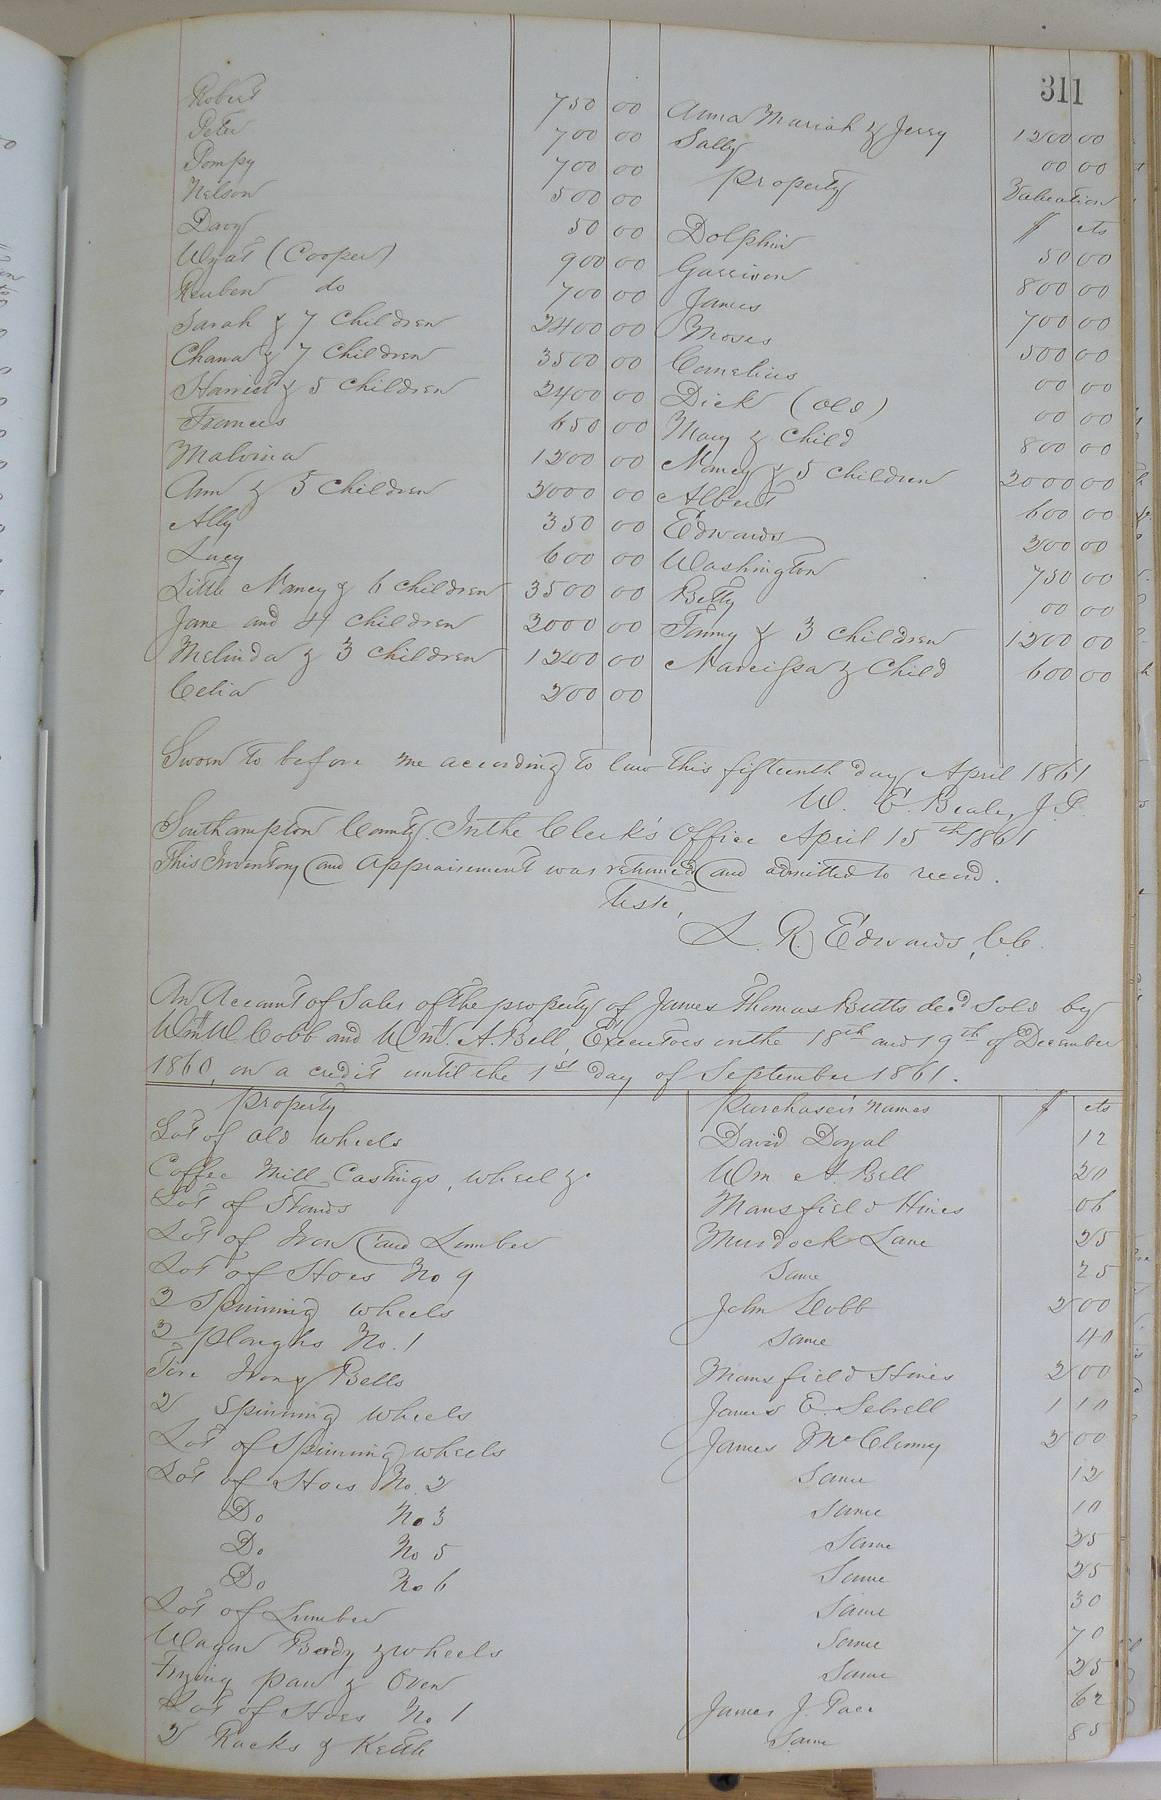 311
Robert 750 00 Anna Mariah & Jerry 1200 00
Peter 700 00 Sally 00 00
Pompy 700 00 Property Valuation
Nelson 500 00 $ cts
Davy 50 00 Dolphin 50 00
Wyat (Cooper) 900 00 Garrison 800 00
Reuben do 700 00 James 700 00
Sarah & 7 Children 2400 00 Moses 500 00
Chana & 7 Children 3500 00 Cornelius 00 00
Harriet & 5 Children 2400 00 Dick (Old) 00 00
Frances 650 00 Mary & Child 800 00
Malvina 1200 00 Nancy & 5 Children 2000 00
Ann & 5 Children 2000 00 Albert 600 00
Ally 350 00 Edwards 200 00
Lucy 600 00 Washington 750 00
Little Nancy & 6 children 3500 00 Betty 00 00
Jane and 4 children 2000 00 3 Children 1200 00
Melinda & 3 children 1200 00 Narcissa & Child 600 00
Celia 200 00
Sworn to before me according to law this fifteenth day April 1861
W. E. Beale, J. P.
Southampton County. In the Clerk's Office April 15th 1861
This Inventory and Appraisement was returned and admitted to record.
Teste,
L. R. Edwards, C.C.
An Account of Sales of the property of James Thomas Butts decd sold by
Wm W. Cobb and Wm. A. Bell, Executors on the 18th and 19th of December
1860, on a credit until the 1st day of September 1861.
Property Purchaser's Names $ cts
Lot of old wheels David Doyal 12
Coffee Mill Castings, wheel &c Wm A. Bell 20
Lot of Mansfield Hines 06
Lot of Iron and Lumber Murdock Lane 25
Lot of Hoes No 9 Same 25
2 Spinning wheels John Cobb 2 00
2 Ploughs No. 1 Same 40
Irons Bells Mansfield Hines 2 00
2 Spinning wheels James E. Sebrell 1 10
Lot of Spinning wheels James McClenny 2 00
Lot of Hoes No. 2 Same 12
Do No 3 Same 10
Do No 5 Same 25
Do No 6 Same 25
Lot of Lumber Same 30
Wagon Body & wheels Same 70
Frying pan & Oven Same 25
Lot of Hoes No 1 James J. Pace 62
2 Racks & Kettle Same 85